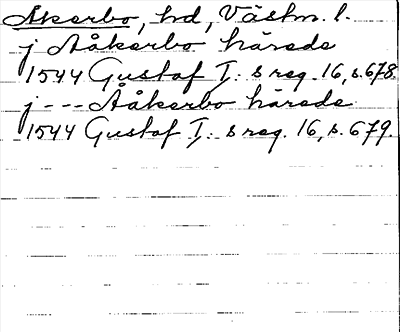 Åkerbo, hd, Västm. l.
j Aåkerbo härede
1544 Gustaf I: s reg. 16, s. 678.
j --- Aåkerbo härede
1544 Gustaf I: s reg. 16, s. 679.